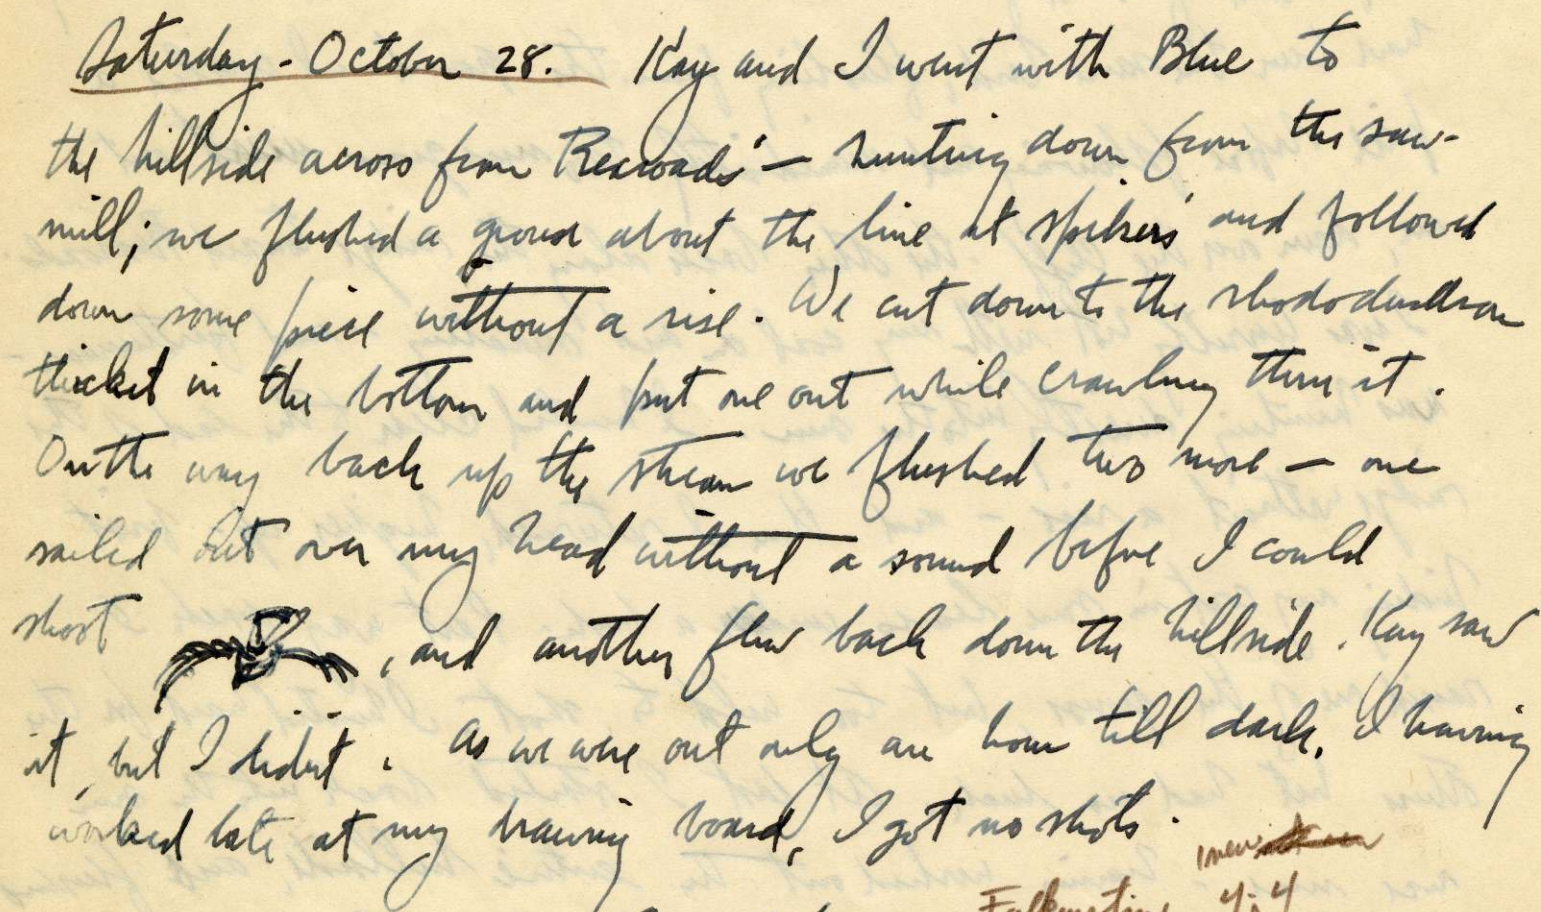 Saturday - October 28. Kay and I went with Blue to
the hillside across from Rexroads' — hunting down from the saw-
mill; we flushed a grouse about the line at Spikers' and followed
down some piece without a rise. We cut down to the rhododendron
thicket in the bottom and put one out while crawling thru it.
On the way back up the stream we flushed two more — one
sailed out over my head without a sound before I could
shoot , and another flew back down the hillside. Kay saw
it, but I didn't. As we were out only an hour till dark, I having
worked late at my drawing board, I got no shots.
4; 4